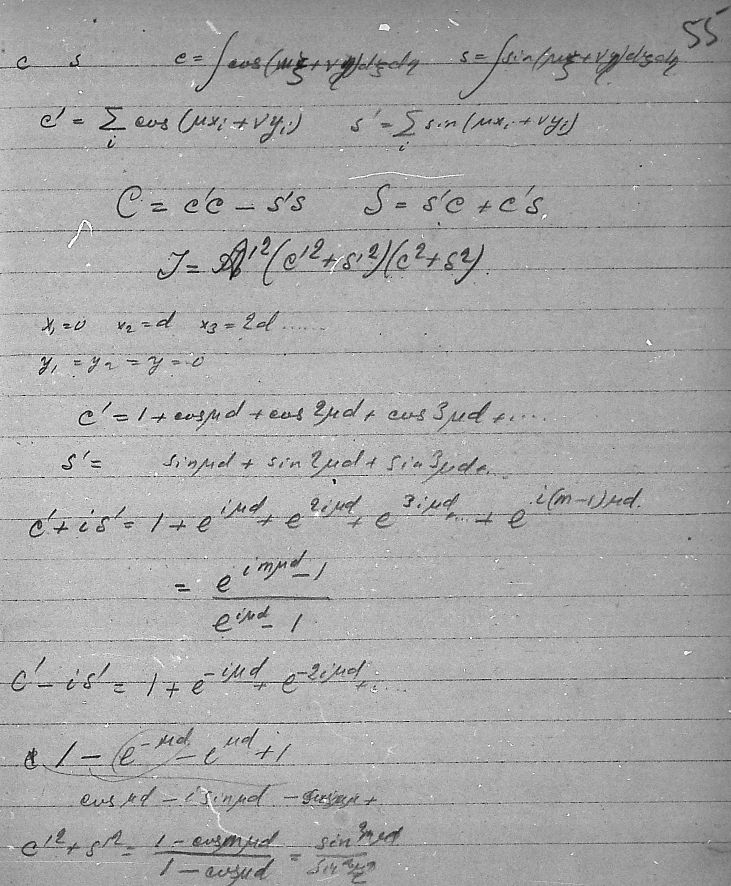 55
c s c = ∫cos(μξ+νη)dξdη s = ∫sin(μξ+νη)dξdη
c' = Σ_i cos(μx_i+νy_i) s' = Σ_i sin(μx_i+νy_i)
C = c'c − s's S = s'c + c's
J = A'²(c'²+s'²)(c²+s²)
x₁=0 x₂=d x₃=2d ......
y₁ = y₂ = y = 0
c' = 1 + cosμd + cos2μd + cos3μd + ....
s' = sinμd + sin2μd + sin3μd+..
c'+is' = 1 + e^{iμd} + e^{2iμd} + e^{3iμd} + ... + e^{i(m−1)μd}.
= (e^{imμd} − 1)/(e^{iμd} − 1)
c'−is' = 1 + e^{−iμd} + e^{−2iμd} + ....
1 − e^{−μd} − e^{μd} + 1
cosμd − i sinμd −
c'²+s'² = (1 − cosmμd)/(1 − cosμd) =